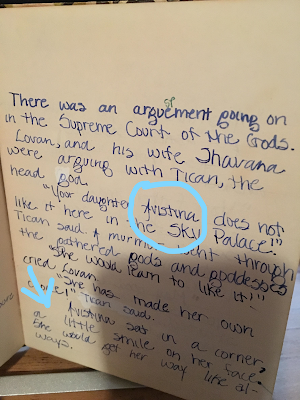 There was an arguement going on
in the Supreme Court of the Gods.
Lovan, and his wife Jhavana
were arguing with Tican, the
head god.
"Your daughter Avistina does not
like it here in the Sky Palace!"
Tican said. A murmur went through
the gathered gods and goddesses
"She would learn to like it!"
cried Lovan.
"She has made her own
Tican said.
Avistina sat in a corner
a little smile on her face.
She would get her way like al-
ways.